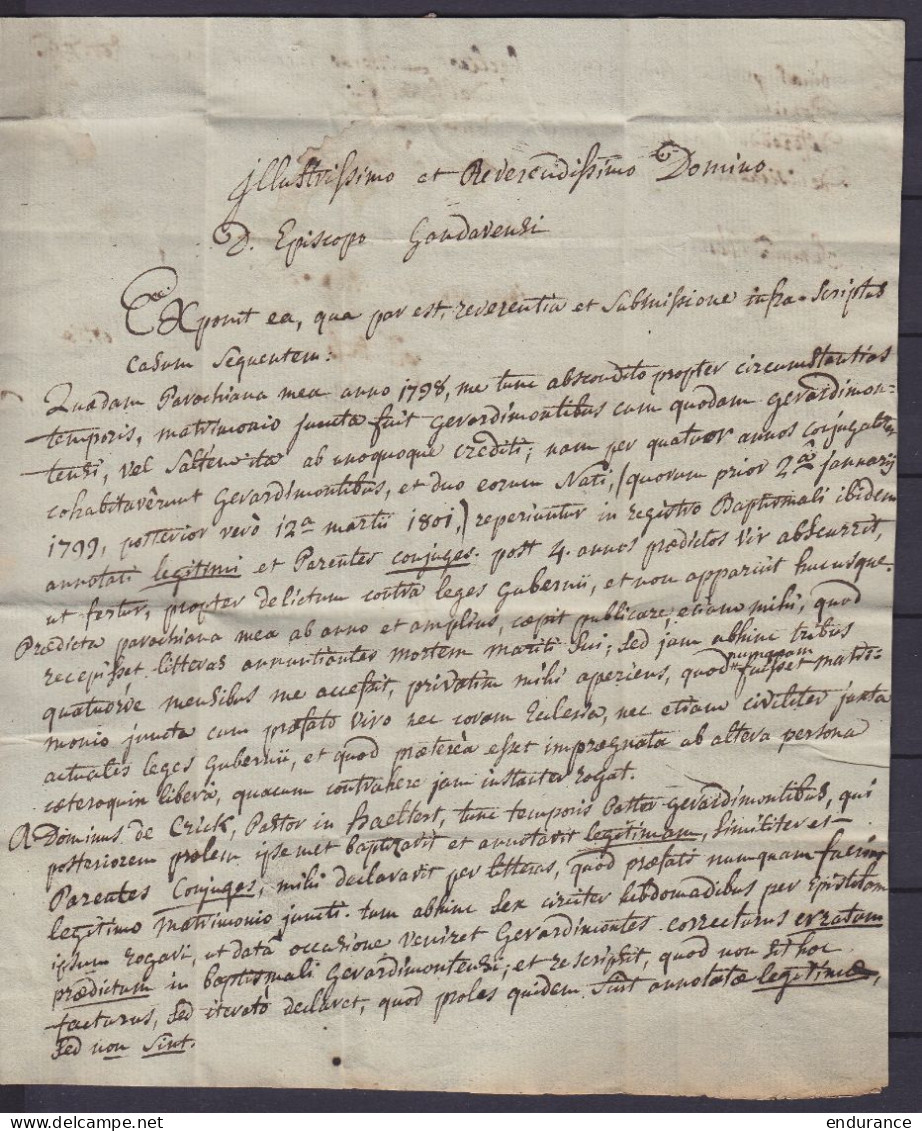 Illustrissimo et Reverendissimo Domino
D. Episcopo Gandavensi
Exponit ea, qua par est, reverentia et submissione infra-scriptus
casum sequentem:
Quædam Parochiana mea anno 1798, me tunc abscondito propter circumstantias
temporis, matrimonio juncta fuit Gerardimontibus cum quodam Gerardimon-
tensi, vel saltem ita ab unoquoque crediti; nam per quatuor annos conjugaliter
cohabitavêrunt Gerardimontibus, et duo eorum Nati, (quorum prior 2â januarij
1799, posterior verò 12â martii 1801,) reperiuntur in registro Baptismali ibidem
annotati legitimi et Parentes conjuges. post 4. annos prædictos vir abscurrit,
ut fertur, propter delictum contra leges Gubernii, et non apparuit hucusque.
Prædicta parochiana mea ab anno et amplius, cæpit publicare, etiam mihi, quod
recepisset litteras annuntiantes mortem mariti sui; sed jam abhinc tribus
quatuorve mensibus me accessit, privatim mihi aperiens, quod numquam fuisset matri-
monio juncta cum præfato viro nec coram Ecclesia, nec etiam civiliter juxta
actuales leges Gubernii, et quod prætereà esset imprægnata ab altera persona
cæteroquin liberâ, quacum contrahere jam instanter rogat.
A Dominus de Crick, Pastor in haeltert, tunc temporis Pastor Gerardimontibus, qui
posteriorem prolem ipsemet baptizavit et annotavit legitimam, similiter et
Parentes Conjuges, mihi declaravit per litteras, quod præfati numquam fuerint
legitimo matrimonio juncti. tum abhinc sex circiter hebdomadibus per Epistolam
ipsum rogavi, ut datâ occasione veniret Gerardimontes correcturus erratum
prædictum in baptismali Gerardimontensi; et rescripsit, quod non sit hoc
facturus, sed iteratò declaret, quod proles quidem sint annotatæ legitimæ,
sed non sint.
endurance